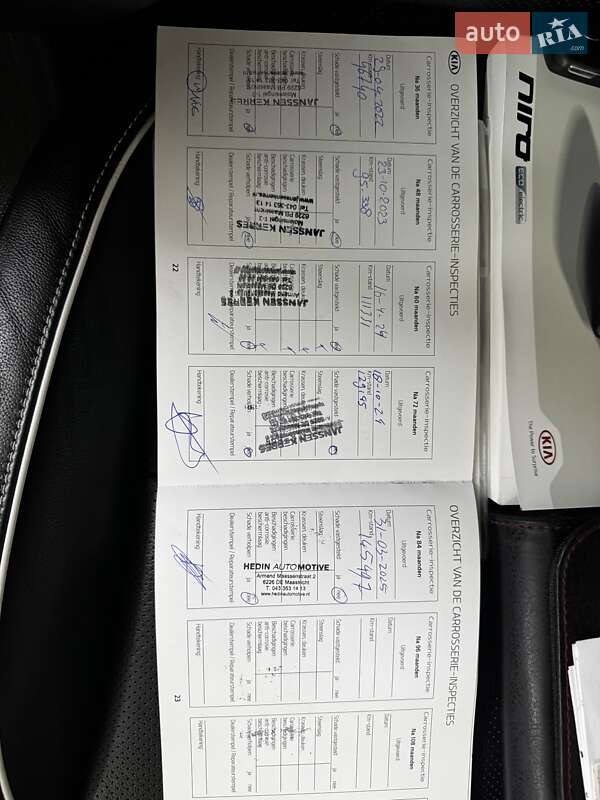 auto RIA.com
KIA OVERZICHT VAN DE CARROSSERIE-INSPECTIES
Carrosserie-inspectie
Na 36 maanden
Uitgevoerd
Datum
Km-stand
96740
Schade vastgesteld ja nee
Steenslag
Krassen, deuken
Carrosserie beschadigingen
Beschadigingen anti-corrosie beschermlaag
Schade verholpen ja
Dealerstempel / Reparateurstempel
JANSSEN KERRES
Handtekening
Carrosserie-inspectie
Na 48 maanden
Uitgevoerd
Datum 23-10-2023
Km-stand 95.338
Schade vastgesteld ja nee
Steenslag
Krassen, deuken
Carrosserie beschadigingen
Beschadigingen anti-corrosie beschermlaag
Schade verholpen ja nee
Dealerstempel / Reparateurstempel
JANSSEN KERRES
6229 PB Maastricht
Tel. 043-363 14 13
Handtekening
Carrosserie-inspectie
Na 60 maanden
Uitgevoerd
Datum 16-4-24
Km-stand 111331
Schade vastgesteld ja
Steenslag
Krassen, deuken
Carrosserie beschadigingen
Beschadigingen anti-corrosie beschermlaag
Schade verholpen ja
Dealerstempel / Reparateurstempel
JANSSEN KERRES
Handtekening
22
Carrosserie-inspectie
Na 72 maanden
Uitgevoerd
Datum 18-10-24
Km-stand 129195
Schade vastgesteld ja
Steenslag
Krassen, deuken
Carrosserie beschadigingen
Beschadigingen anti-corrosie beschermlaag
Schade verholpen
Dealerstempel / Reparateurstempel
JANSSEN KERRES
Handtekening
OVERZICHT VAN DE CARROSSERIE-INSPECTIES
Carrosserie-inspectie
Na 84 maanden
Uitgevoerd
Datum 31-03-2025
Km-stand 145497
Schade vastgesteld ja nee
Steenslag
Krassen, deuken
Carrosserie beschadigingen
Beschadigingen anti-corrosie beschermlaag
Schade verholpen ja nee
Dealerstempel / Reparateurstempel
HEDIN AUTOMOTIVE
Armand Maassenstraat 2
6226 DE Maastricht
T. 043 363 14 13
www.hedinautomotive.nl
Handtekening
Carrosserie-inspectie
Na 96 maanden
Uitgevoerd
Datum
Km-stand
Schade vastgesteld ja nee
Steenslag
Krassen, deuken
Carrosserie beschadigingen
Beschadigingen anti-corrosie beschermlaag
Schade verholpen ja nee
Dealerstempel / Reparateurstempel
Handtekening
23
Carrosserie-inspectie
Na 108 maanden
Uitgevoerd
Datum
Km-stand
Schade vastgesteld ja nee
Steenslag
Krassen, deuken
Carrosserie beschadigingen
Beschadigingen anti-corrosie beschermlaag
Schade verholpen ja nee
Dealerstempel / Reparateurstempel
Handtekening
niro
eco electric
KIA
The Power to Surprise